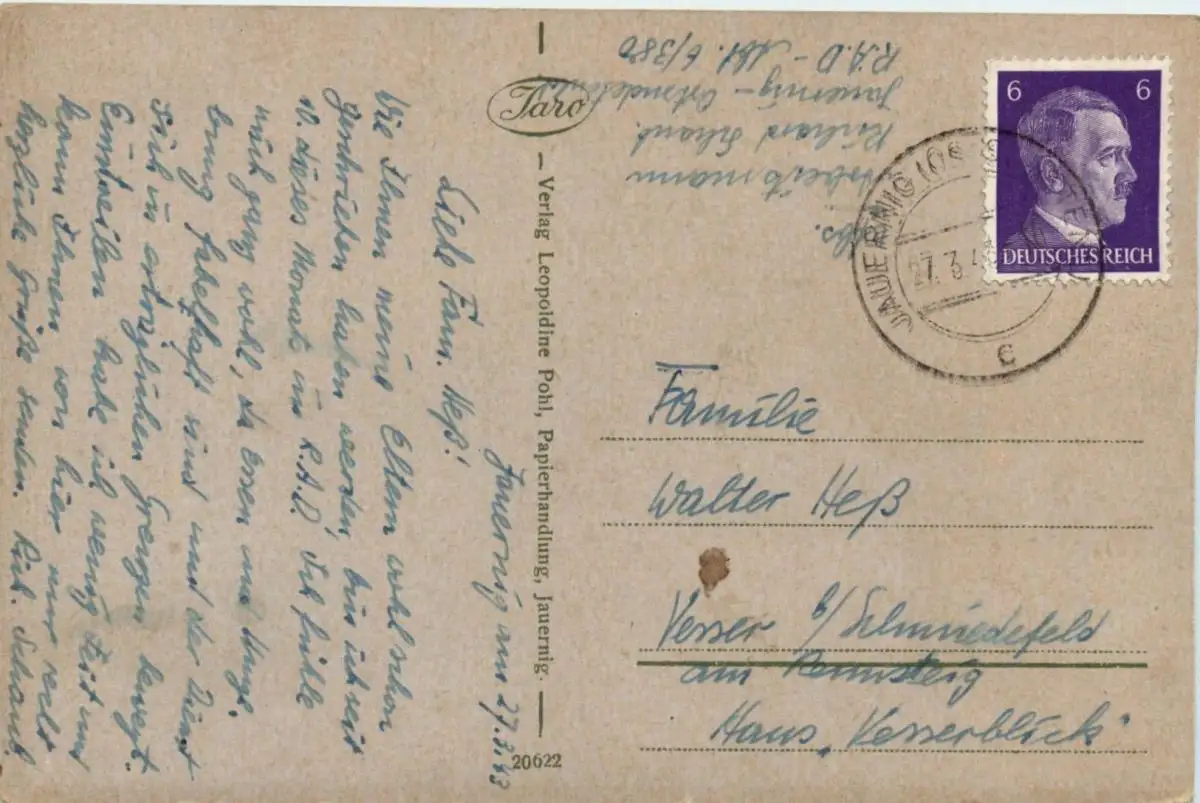 Jauernig am 27.3.43
Liebe Fam. Heß!
Wie Ihnen meine Eltern wohl schon
geschrieben haben werden, bin ich seit
10. dieses Monats im R.A.D. Ich fühle
mich ganz wohl, da Essen und
fabelhaft sind und der Dienst
sich in erträglichen Grenzen bewegt.
Einstweilen habe ich wenig Zeit und
kann Ihnen von hier nur recht
herzliche Grüße senden. Rich. Schank
Taro
– Verlag Leopoldine Pohl, Papierhandlung, Jauernig. –
20622
Abs.
Arbeitsmann
Richard Schank
Jauernig – Ostsudetenld.
R.A.D – Abt. 6/380
6 6
DEUTSCHES REICH
JAUERNIG
27.3.43
c
Familie
Walter Heß
Vesser b/Schmiedefeld
am Rennsteig
Haus „Vesserblick"